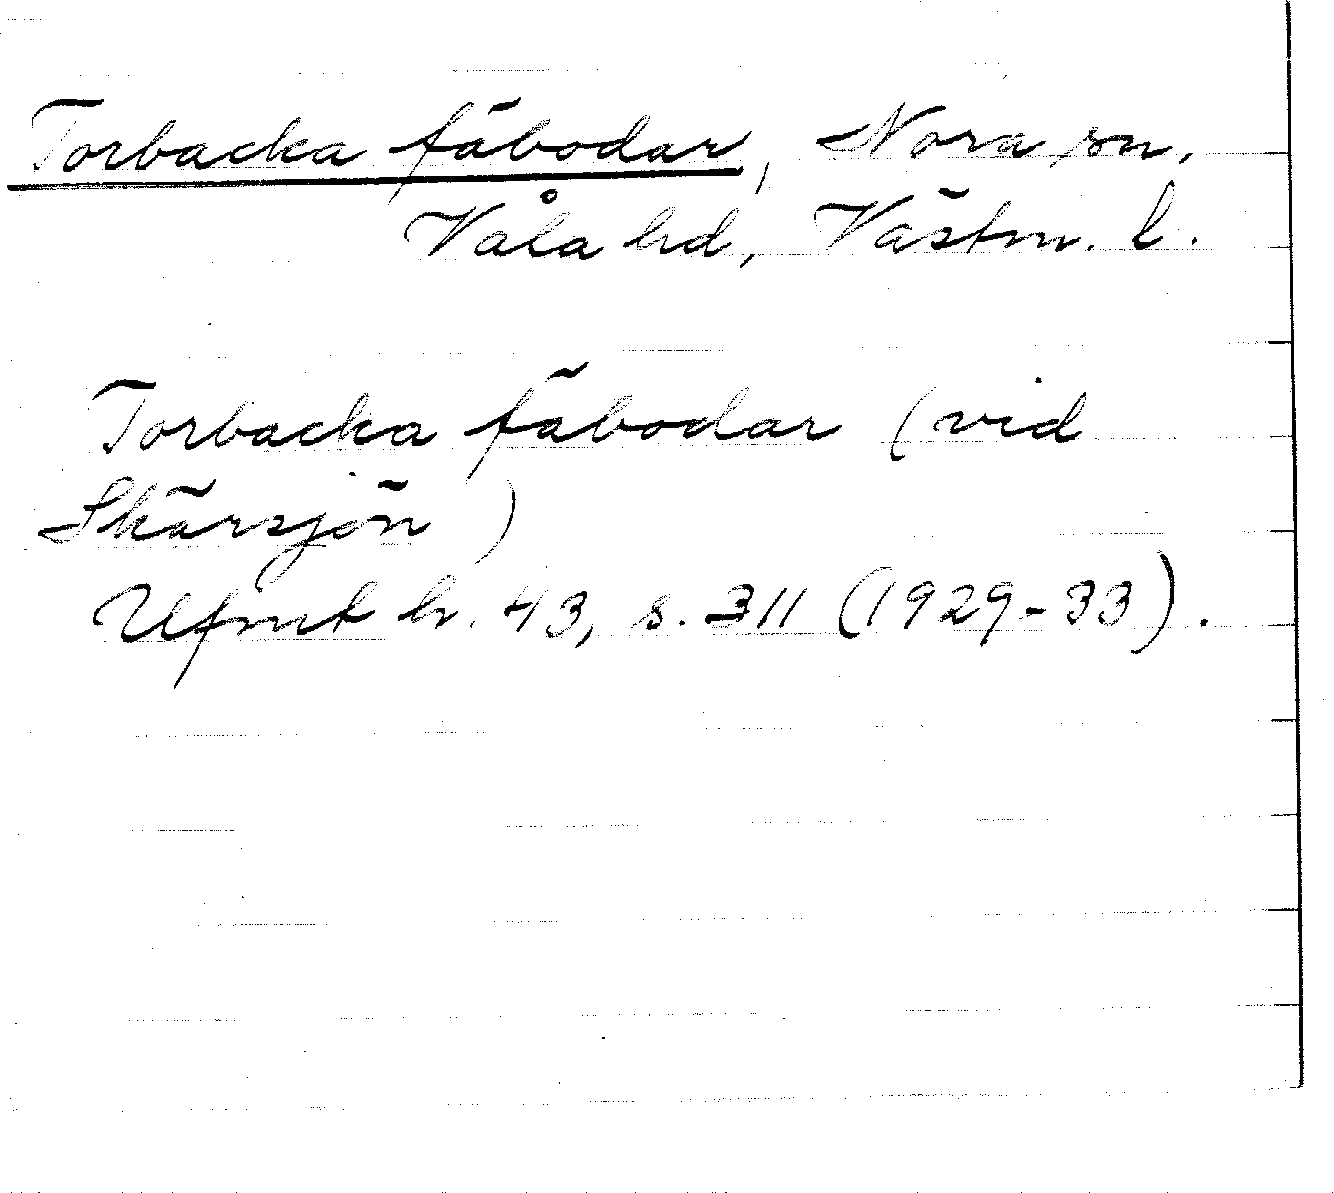 Torbacka fäbodar, Nora sn.
Våla hd, Västm. l.
Torbacka fäbodar (vid
Skärsjön)
Ufmt h. 43, s. 311 (1929-33).